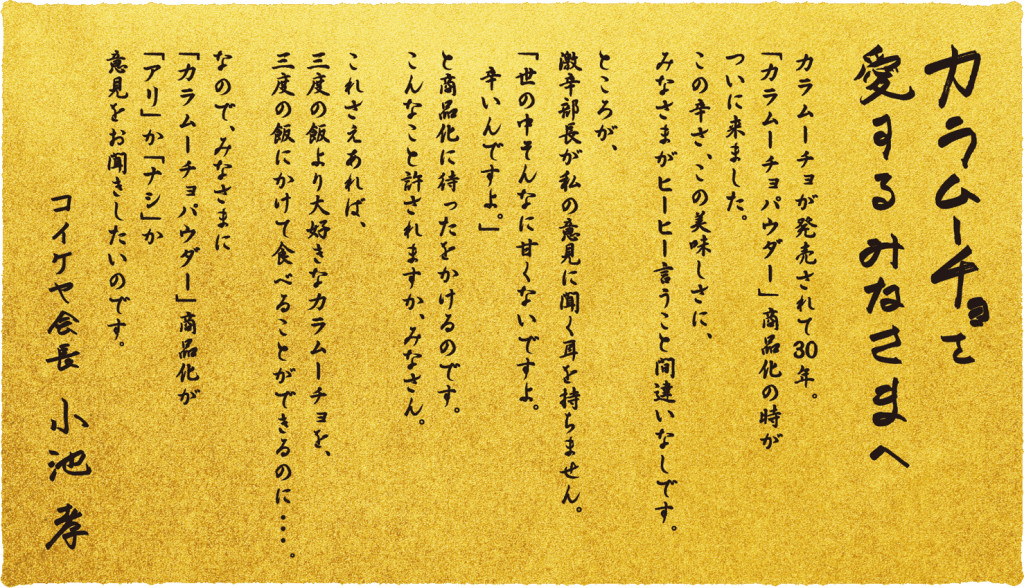 カラムーチョを
愛するみなさまへ
カラムーチョが発売されて30年。
「カラムーチョパウダー」商品化の時が
ついに来ました。
この辛さ、この美味しさに、
みなさまがヒーヒー言うこと間違いなしです。
ところが、
激辛部長が私の意見に聞く耳を持ちません。
「世の中そんなに甘くないですよ。
辛いんですよ。」
と商品化に待ったをかけるのです。
こんなこと許されますか、みなさん。
これさえあれば、
三度の飯より大好きなカラムーチョを、
三度の飯にかけて食べることができるのに・・・。
なので、みなさまに
「カラムーチョパウダー」商品化が
「アリ」か「ナシ」か
意見をお聞きしたいのです。
コイケヤ会長 小池 孝